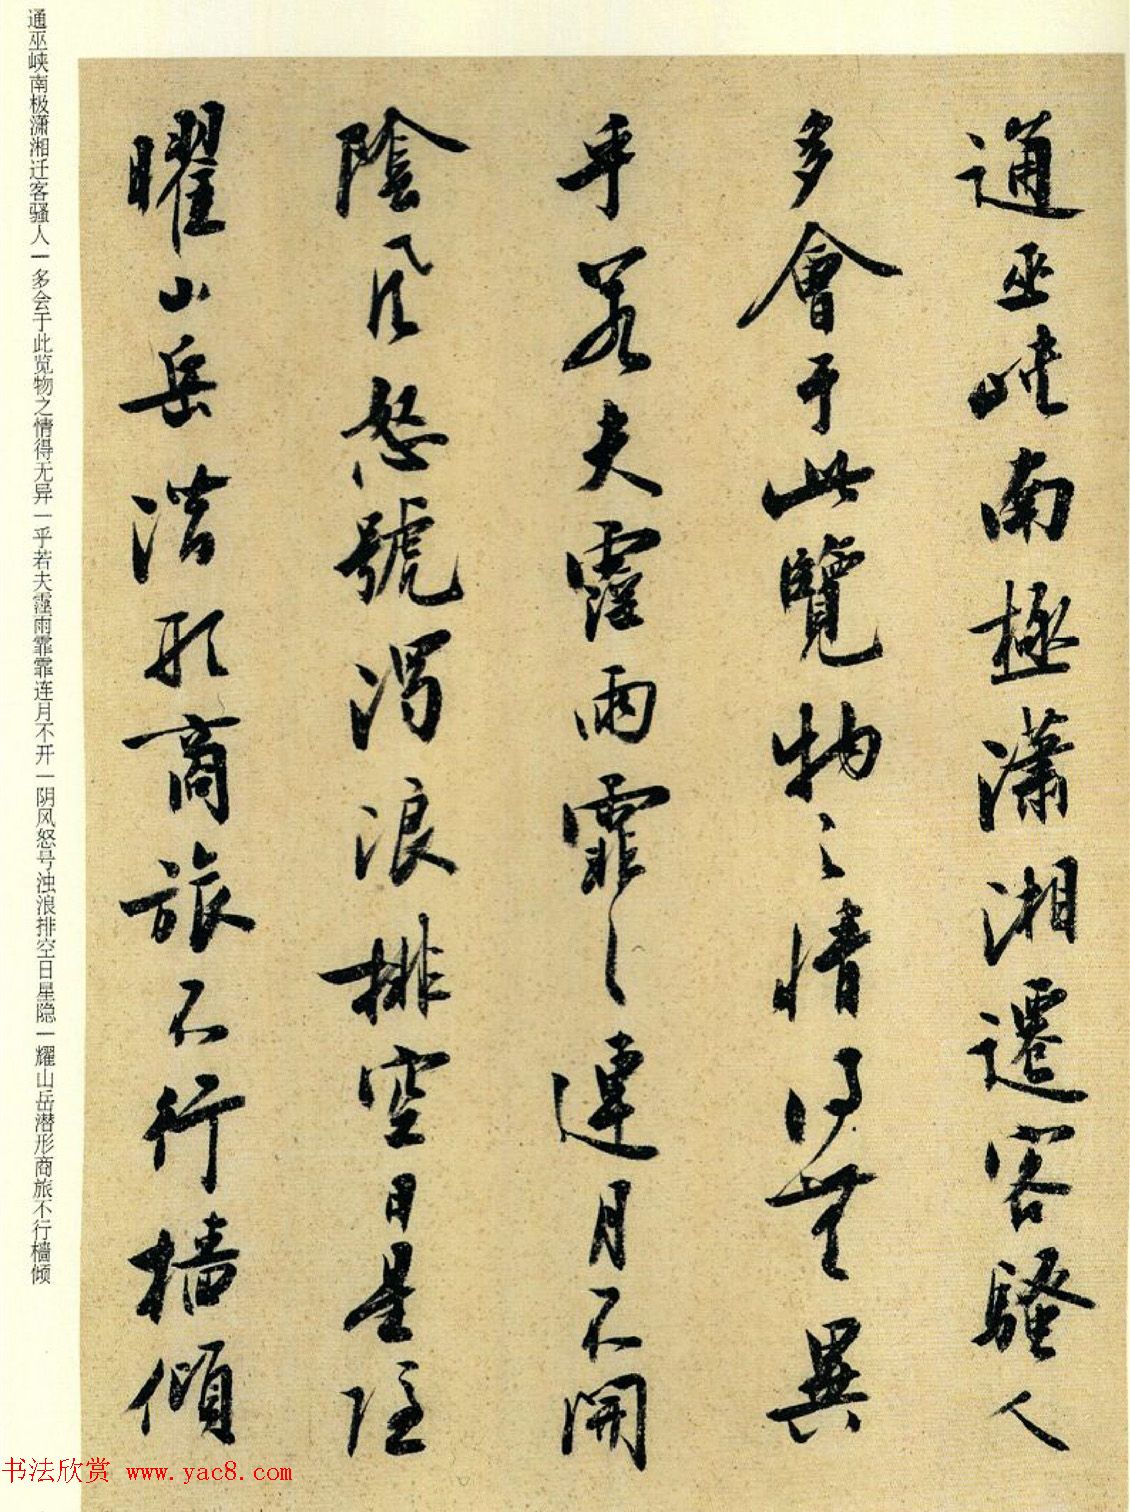 通巫峽南極瀟湘遷客騷人
多會于此覽物之情得無異
乎若夫霪雨霏〻連月不開
陰風怒號濁浪排空日星隱
曜山岳潛形商旅不行檣傾
通巫峡南极潇湘迁客骚人一多会于此览物之情得无异一乎若夫霪雨霏霏连月不开一阴风怒号浊浪排空日星隐一耀山岳潜形商旅不行樯倾
书法欣赏 www.yac8.com